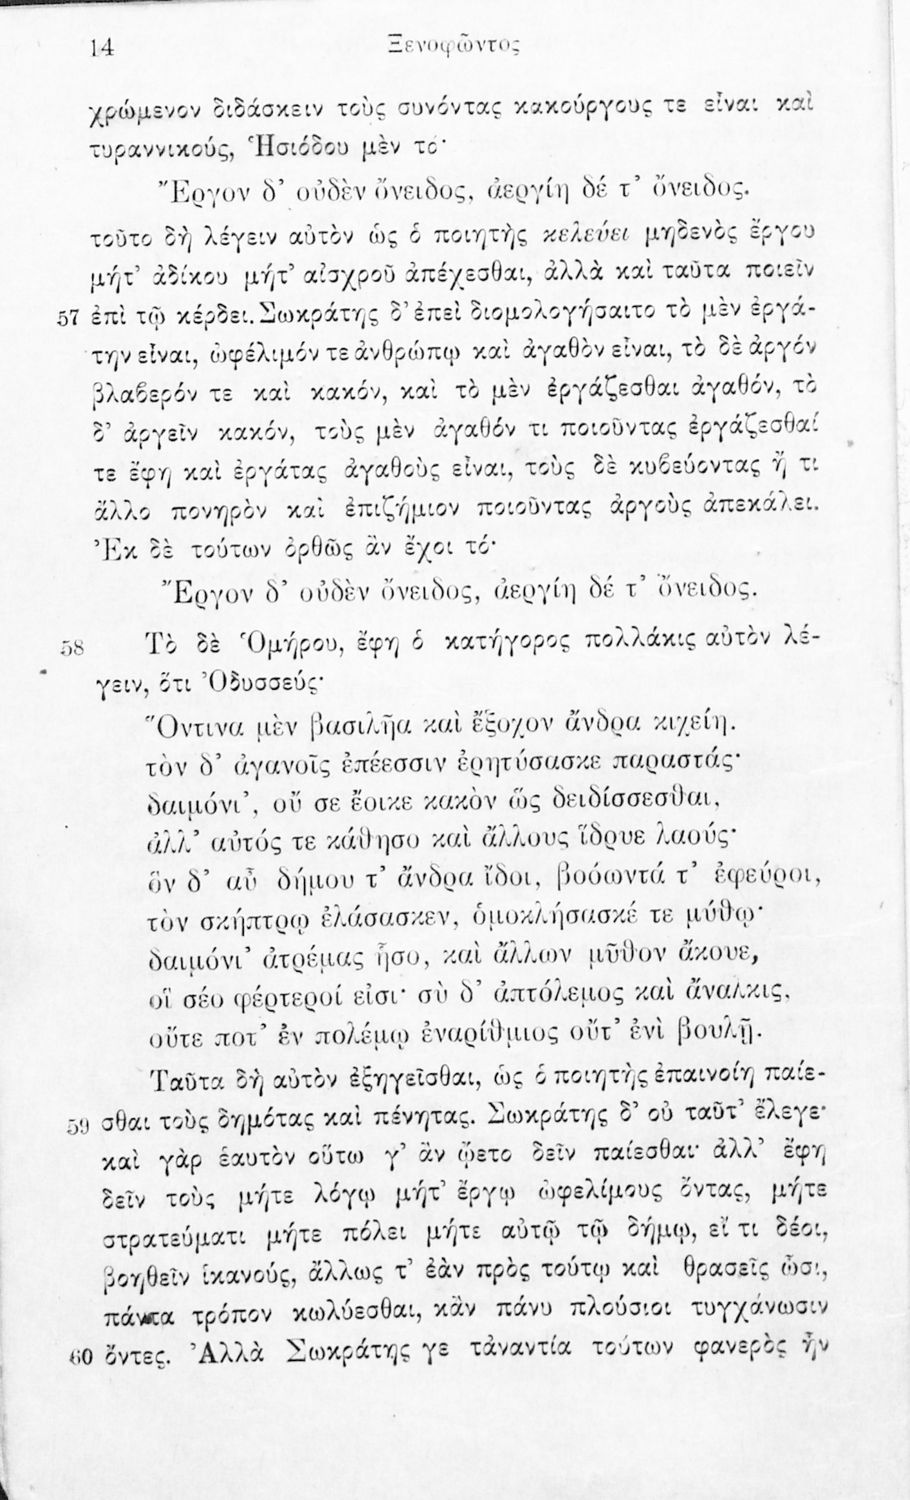 14 Ξενοφῶντος
χρώμενον διδάσκειν τοὺς συνόντας κακούργους τε εἶναι καὶ
τυραννικούς, Ἡσιόδου μὲν τό·
Ἔργον δ’ οὐδὲν ὄνειδος, ἀεργίη δέ τ’ ὄνειδος.
τοῦτο δὴ λέγειν αὐτὸν ὡς ὁ ποιητὴς κελεύει μηδενὸς ἔργου
μήτ’ ἀδίκου μήτ’ αἰσχροῦ ἀπέχεσθαι, ἀλλὰ καὶ ταῦτα ποιεῖν
57 ἐπὶ τῷ κέρδει. Σωκράτης δ’ ἐπεὶ διομολογήσαιτο τὸ μὲν ἐργά-
την εἶναι, ὠφέλιμόν τε ἀνθρώπῳ καὶ ἀγαθὸν εἶναι, τὸ δὲ ἀργόν
βλαβερόν τε καὶ κακόν, καὶ τὸ μὲν ἐργάζεσθαι ἀγαθόν, τὸ
δ’ ἀργεῖν κακόν, τοὺς μὲν ἀγαθόν τι ποιοῦντας ἐργάζεσθαί
τε ἔφη καὶ ἐργάτας ἀγαθοὺς εἶναι, τοὺς δὲ κυβεύοντας ἤ τι
ἄλλο πονηρὸν καὶ ἐπιζήμιον ποιοῦντας ἀργοὺς ἀπεκάλει.
Ἐκ δὲ τούτων ὀρθῶς ἂν ἔχοι τό·
Ἔργον δ’ οὐδὲν ὄνειδος, ἀεργίη δέ τ’ ὄνειδος.
58 Τὸ δὲ Ὁμήρου, ἔφη ὁ κατήγορος πολλάκις αὐτὸν λέ-
γειν, ὅτι Ὀδυσσεύς·
Ὅντινα μὲν βασιλῆα καὶ ἔξοχον ἄνδρα κιχείη.
τὸν δ’ ἀγανοῖς ἐπέεσσιν ἐρητύσασκε παραστάς·
δαιμόνι’, οὔ σε ἔοικε κακὸν ὣς δειδίσσεσθαι,
ἀλλ’ αὐτός τε κάθησο καὶ ἄλλους ἵδρυε λαούς·
ὃν δ’ αὖ δήμου τ’ ἄνδρα ἴδοι, βοόωντά τ’ ἐφεύροι,
τὸν σκήπτρῳ ἐλάσασκεν, ὁμοκλήσασκέ τε μύθῳ·
δαιμόνι’ ἀτρέμας ἧσο, καὶ ἄλλων μῦθον ἄκουε,
οἳ σέο φέρτεροί εἰσι· σὺ δ’ ἀπτόλεμος καὶ ἄναλκις,
οὔτε ποτ’ ἐν πολέμῳ ἐναρίθμιος οὔτ’ ἐνὶ βουλῇ.
Ταῦτα δὴ αὐτὸν ἐξηγεῖσθαι, ὡς ὁ ποιητὴς ἐπαινοίη παίε-
59 σθαι τοὺς δημότας καὶ πένητας. Σωκράτης δ’ οὐ ταῦτ’ ἔλεγε·
καὶ γὰρ ἑαυτὸν οὕτω γ’ ἂν ᾤετο δεῖν παίεσθαι· ἀλλ’ ἔφη
δεῖν τοὺς μήτε λόγῳ μήτ’ ἔργῳ ὠφελίμους ὄντας, μήτε
στρατεύματι μήτε πόλει μήτε αὐτῷ τῷ δήμῳ, εἴ τι δέοι,
βοηθεῖν ἱκανούς, ἄλλως τ’ ἐὰν πρὸς τούτῳ καὶ θρασεῖς ὦσι,
πάντα τρόπον κωλύεσθαι, κἂν πάνυ πλούσιοι τυγχάνωσιν
60 ὄντες. Ἀλλὰ Σωκράτης γε τἀναντία τούτων φανερὸς ἦν